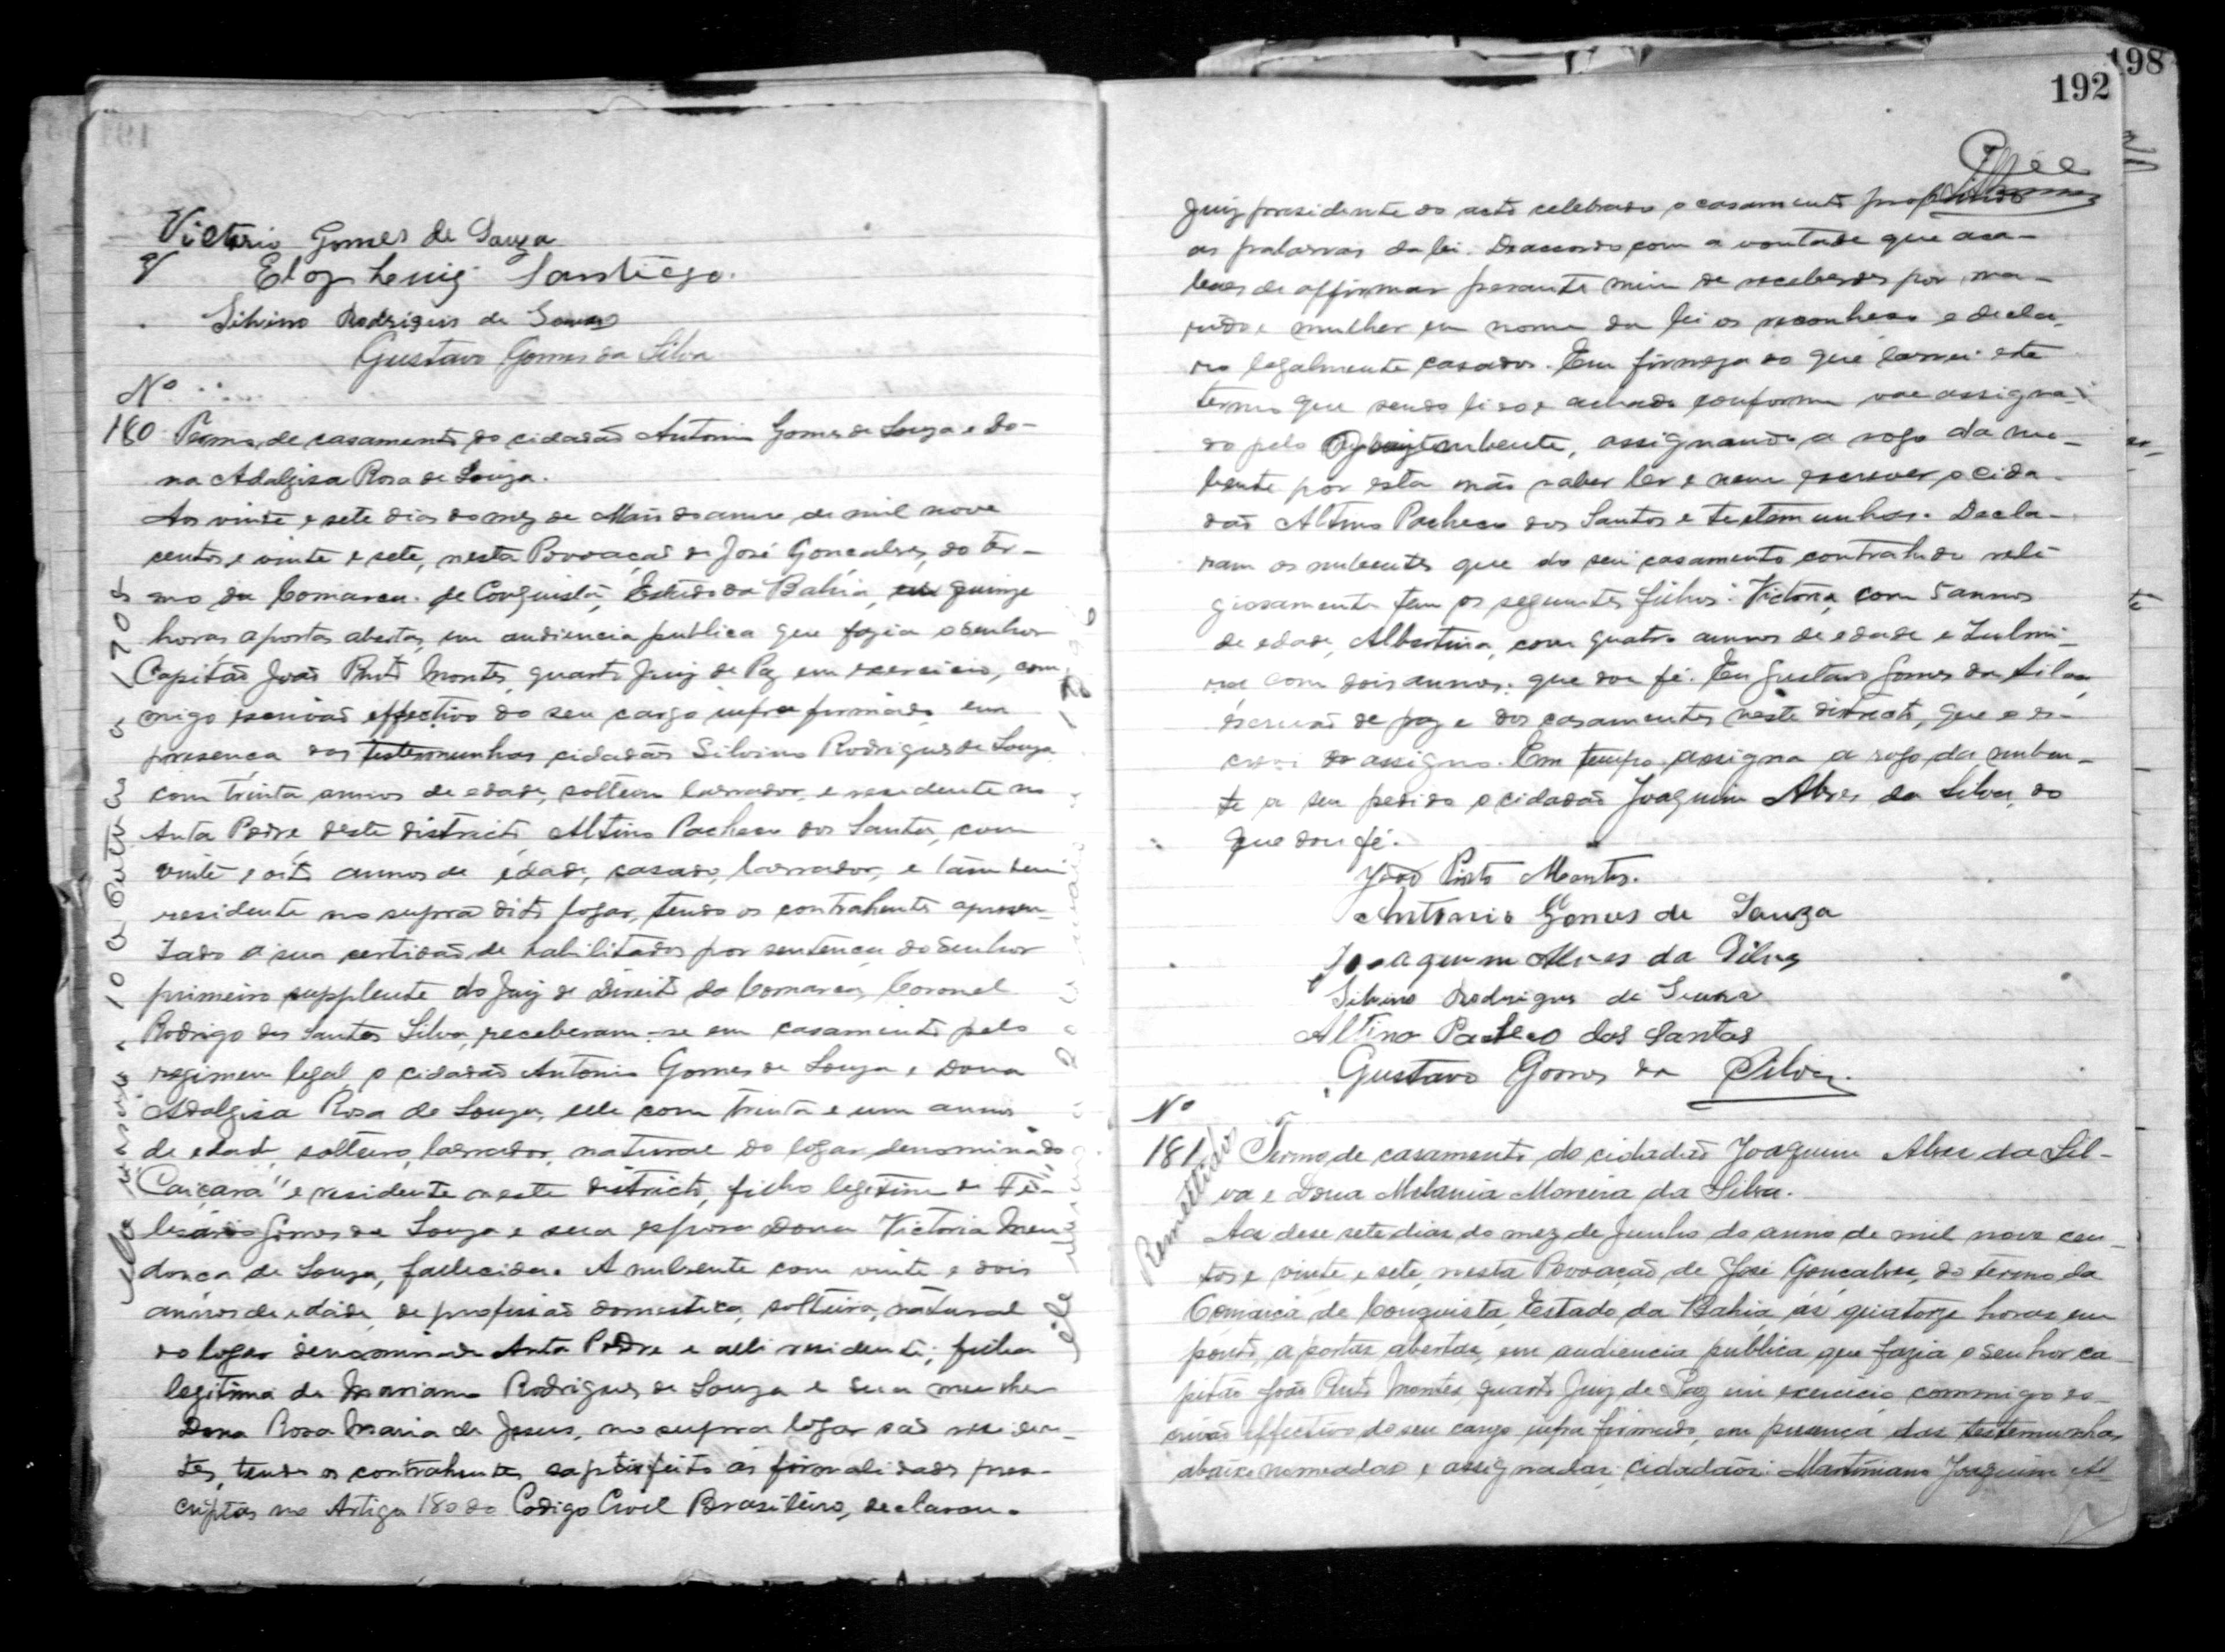 Victorio Gomes de Souza
Silvino Rodrigues de Souza
Gustavo Gomes da Silva
Nº
180 Termo de casamento do cidadão Antonio Gomes de Souza e Do-
na Adalgisa Rosa de Souza.
Aos vinte e sete dias do mez de Maio do anno de mil nove
centos e vinte e sete, nesta Povoação de José Gonçalves, do ter-
mo da Comarca de Conquista, Estado da Bahia, quinze
horas, a portas abertas, em audiencia publica que fazia o senhor
Capitão João Pinto Montes, quarto Juiz de Paz em exercicio, com
migo escrivão effectivo do seu cargo infra firmado, em
presença das testemunhas cidadãos Silvino Rodrigues de Souza
com trinta annos de edade, solteiro lavrador, e residente no
Anta Podre deste districto, Altino Pacheco dos Santos, com
vinte e oito annos de edade, casado, lavrador, e tambem
residente no supra dito logar, tendo os contrahentes apresen-
tado a sua certidão de habilitados por sentença do senhor
primeiro supplente do Juiz de Direito da Comarca, Coronel
Rodrigo dos Santos Silva, receberam-se em casamento pelo
regimen legal o cidadão Antonio Gomes de Souza e Dona
Adalgisa Rosa de Souza, elle com trinta e um annos
de edade, solteiro, lavrador, natural do logar denominado
"Caiçara" e residente neste districto, filho legitimo de
Gomes de Souza e sua esposa Dona Victoria Men
donça de Souza, fallecida. A nubente com vinte e dois
annos de edade, de profissão domestica, solteira, natural
do logar denominado Anta Podre e alli residente, filha
legitima de Mariano Rodrigues de Souza e sua mulher
Dona Rosa Maria de Jesus, no supra logar são residen-
tes, tendo os contrahentes satisfeito as formalidades pres-
criptas no Artigo 180 do Codigo Civil Brasileiro, declarou o
192
198
Juiz presidente do acto celebrado o casamento
as palavras da lei. De accordo com a vontade que aca-
baes de affirmar perante mim de receberdes por ma-
rido e mulher em nome da lei os reconheço e decla-
ro legalmente casados. Em firmeza do que lavrei este
termo que sendo lido e achado conforme vae assigna-
do pelo nubente, assignando a rogo da nu-
bente por esta não saber ler e nem escrever o cida-
dão Altino Pacheco dos Santos e testemunhas. Decla-
ram os nubentes que do seu casamento contrahido reli-
giosamente tem os seguintes filhos: Victoria, com 5 annos
de edade, Albertina, com quatro annos de edade e Zulmi-
ra com dois annos; que dou fé. Eu Gustavo Gomes da Silva
escrivão de paz e dos casamentos neste districto, que o es-
crevi assigno. Em tempo assigna a rogo da nuben-
te a seu pedido o cidadão Joaquim Alves da Silva, do
que dou fé.
João Pinto Montes.
Antonio Gomes de Souza
Joaquim Alves da Silva
Silvino Rodrigues de Souza
Altino Pacheco dos Santos
Gustavo Gomes da Silva.
Nº
181 Termo de casamento do cidadão Joaquim Alves da Sil-
va e Dona Melania Moreira da Silva.
Remettido
Aos dese sete dias do mez de Junho do anno de mil nove cen-
tos e vinte e sete, nesta Povoação de José Gonçalves, do termo da
Comarca de Conquista, Estado da Bahia, ás quatorze horas em
ponto, a portas abertas, em audiencia publica que fazia o senhor ca-
pitão João Pinto Montes, quarto Juiz de Paz em exercicio, commigo es-
crivão effectivo do seu cargo infra firmado, em presença das testemunhas
abaixo nomeadas e assignadas; cidadãos: Martiniano Joaquim Al-